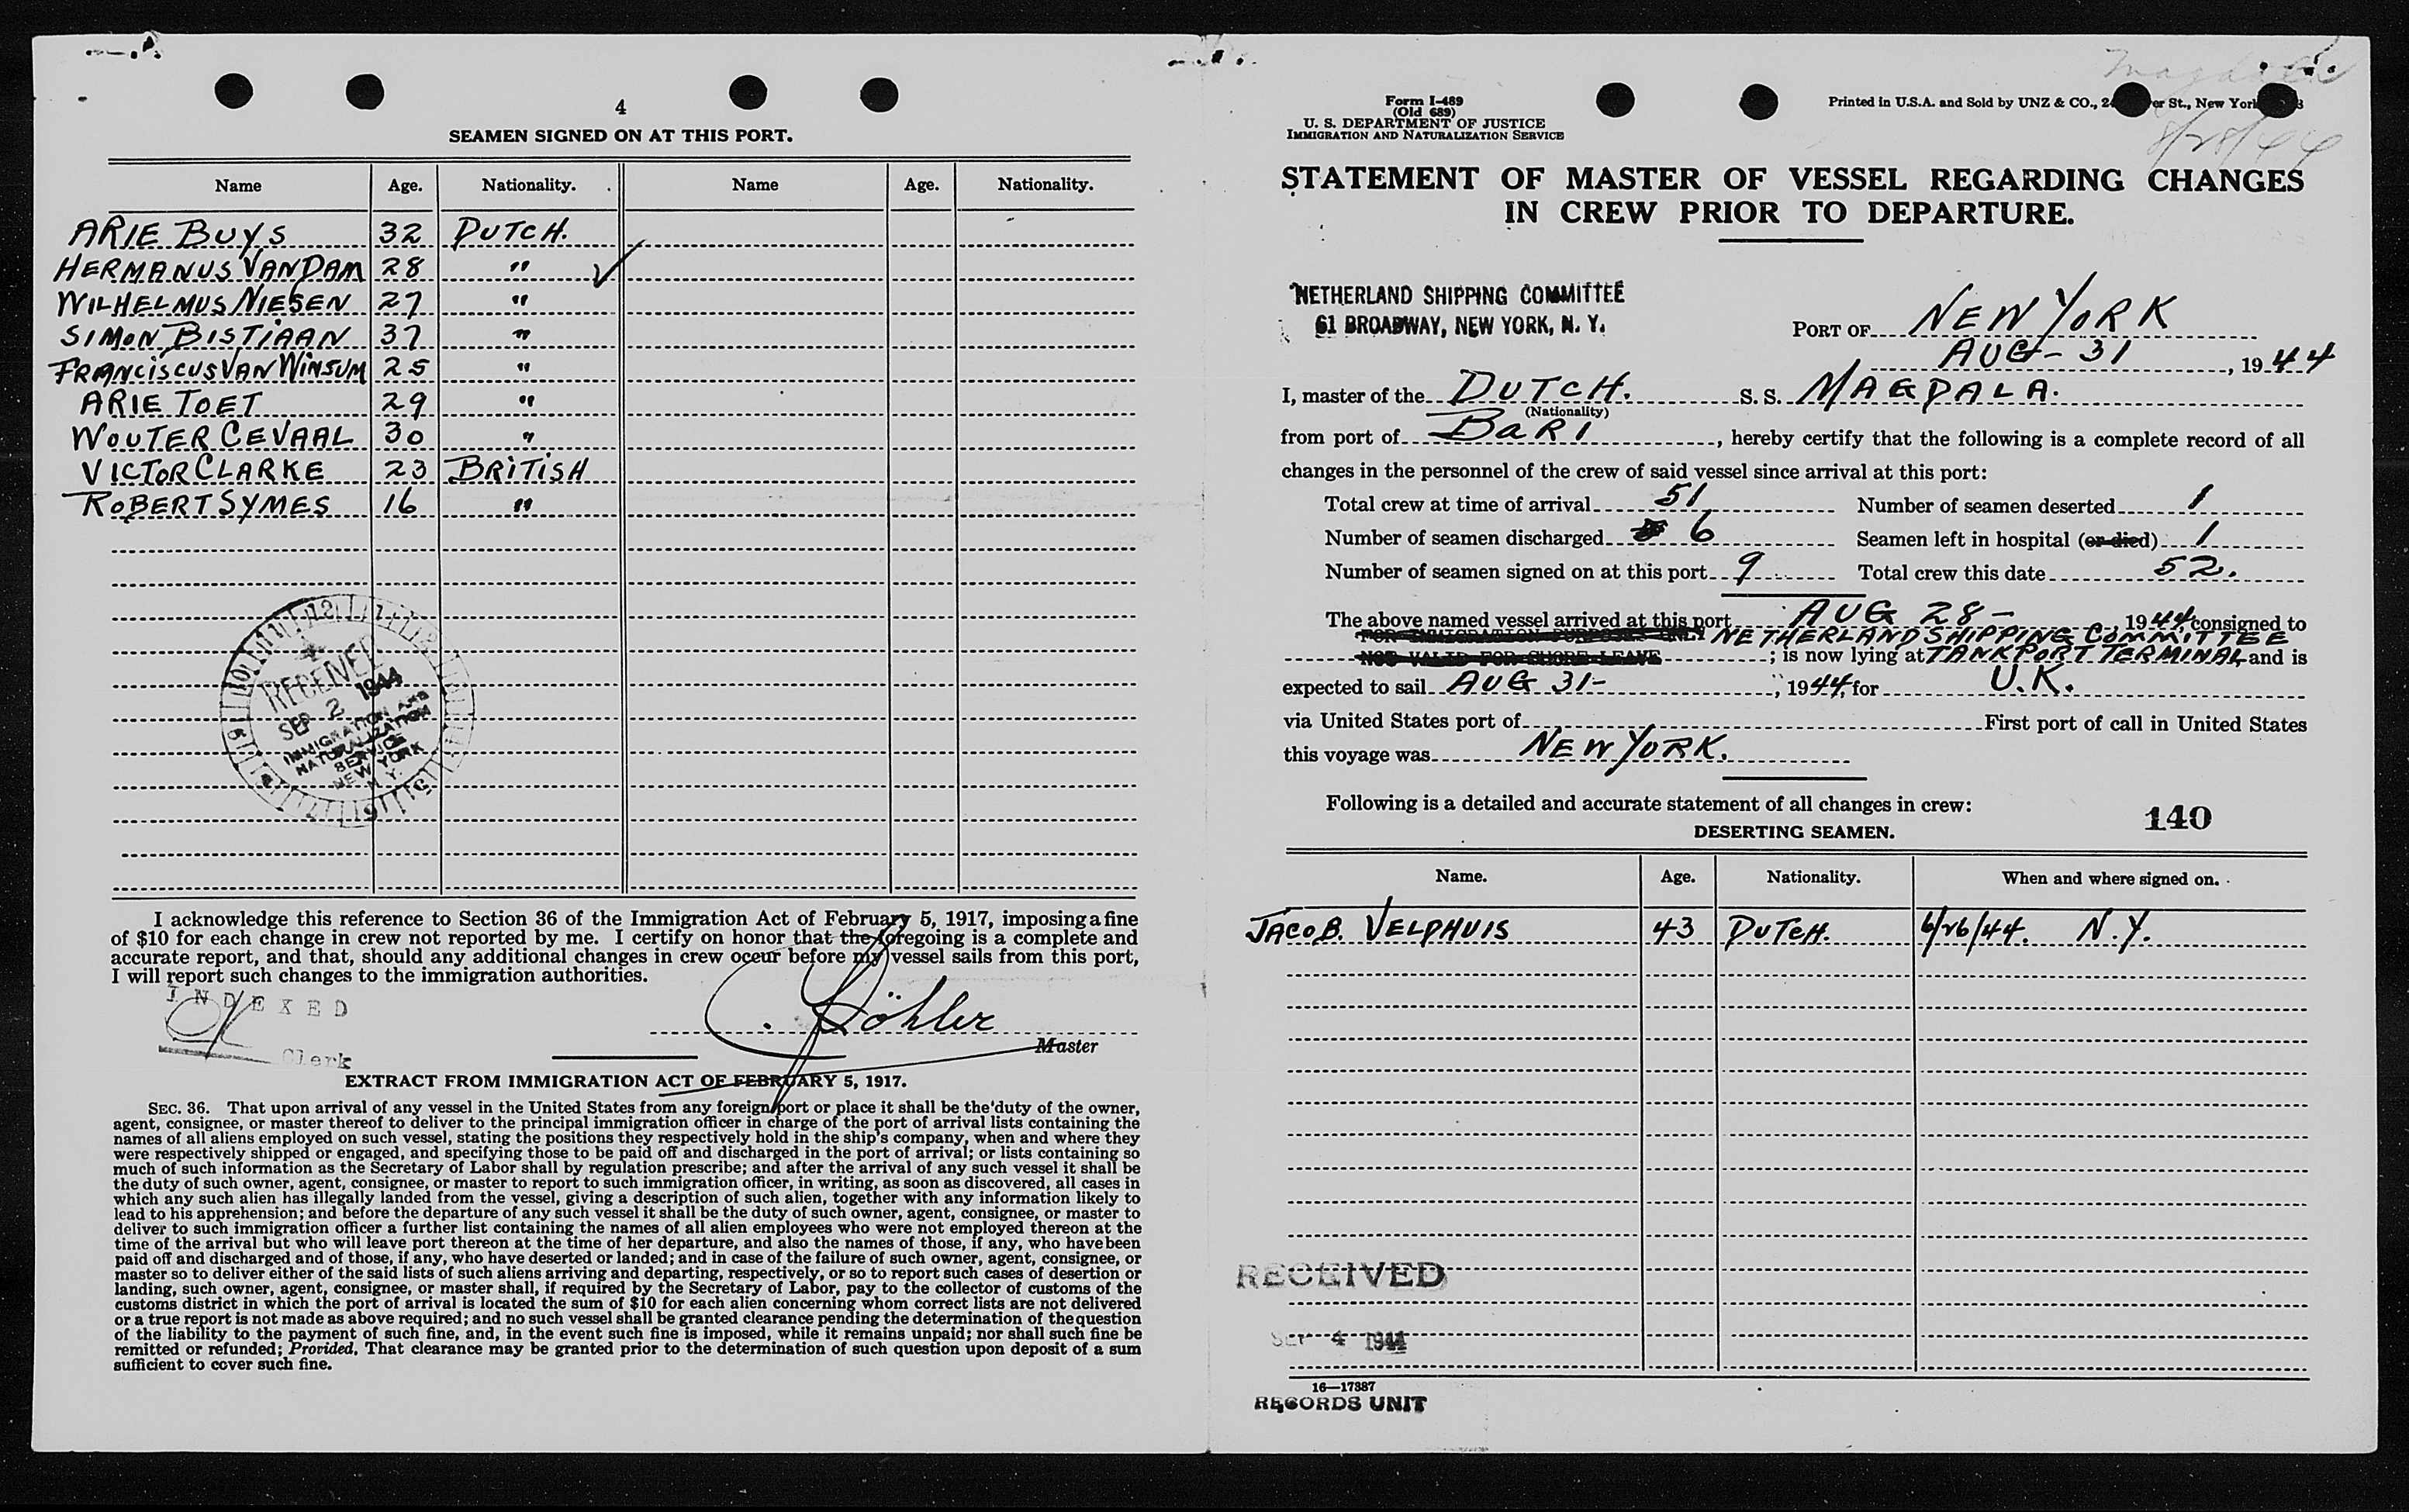 4
SEAMEN SIGNED ON AT THIS PORT.
Name Age. Nationality. Name Age. Nationality.
ARIE BUYS 32 DUTCH.
HERMANUS VAN DAM 28 "
WILHELMUS NIESEN 27 "
SIMON BISTIAAN 37 "
FRANCISCUS VAN WINSUM 25 "
ARIE TOET 29 "
WOUTER CEVAAL 30 "
VICTOR CLARKE 23 BRITISH
ROBERT SYMES 16 "
RECEIVED
SEP 2 1944
IMMIGRATION AND
NATURALIZATION
SERVICE
NEW YORK
N. Y.
I acknowledge this reference to Section 36 of the Immigration Act of February 5, 1917, imposing a fine
of $10 for each change in crew not reported by me. I certify on honor that the foregoing is a complete and
accurate report, and that, should any additional changes in crew occur before my vessel sails from this port,
I will report such changes to the immigration authorities.
INDEXED
Clerk
Köhler
Master
EXTRACT FROM IMMIGRATION ACT OF FEBRUARY 5, 1917.
SEC. 36. That upon arrival of any vessel in the United States from any foreign port or place it shall be the duty of the owner,
agent, consignee, or master thereof to deliver to the principal immigration officer in charge of the port of arrival lists containing the
names of all aliens employed on such vessel, stating the positions they respectively hold in the ship's company, when and where they
were respectively shipped or engaged, and specifying those to be paid off and discharged in the port of arrival; or lists containing so
much of such information as the Secretary of Labor shall by regulation prescribe; and after the arrival of any such vessel it shall be
the duty of such owner, agent, consignee, or master to report to such immigration officer, in writing, as soon as discovered, all cases in
which any such alien has illegally landed from the vessel, giving a description of such alien, together with any information likely to
lead to his apprehension; and before the departure of any such vessel it shall be the duty of such owner, agent, consignee, or master to
deliver to such immigration officer a further list containing the names of all alien employees who were not employed thereon at the
time of the arrival but who will leave port thereon at the time of her departure, and also the names of those, if any, who have been
paid off and discharged and of those, if any, who have deserted or landed; and in case of the failure of such owner, agent, consignee, or
master so to deliver either of the said lists of such aliens arriving and departing, respectively, or so to report such cases of desertion or
landing, such owner, agent, consignee, or master shall, if required by the Secretary of Labor, pay to the collector of customs of the
customs district in which the port of arrival is located the sum of $10 for each alien concerning whom correct lists are not delivered
or a true report is not made as above required; and no such vessel shall be granted clearance pending the determination of the question
of the liability to the payment of such fine, and, in the event such fine is imposed, while it remains unpaid; nor shall such fine be
remitted or refunded; Provided, That clearance may be granted prior to the determination of such question upon deposit of a sum
sufficient to cover such fine.
Magdala
8/28/44
Form I-489
(Old 689)
U. S. DEPARTMENT OF JUSTICE
IMMIGRATION AND NATURALIZATION SERVICE
Printed in U.S.A. and Sold by UNZ & CO., St., New York
STATEMENT OF MASTER OF VESSEL REGARDING CHANGES
IN CREW PRIOR TO DEPARTURE.
NETHERLAND SHIPPING COMMITTEE
61 BROADWAY, NEW YORK, N. Y.
PORT OF NEW YORK
AUG-31, 1944
I, master of the DUTCH. S. S. MAGDALA.
(Nationality)
from port of BARI, hereby certify that the following is a complete record of all
changes in the personnel of the crew of said vessel since arrival at this port:
Total crew at time of arrival 51 Number of seamen deserted 1
Number of seamen discharged 6 Seamen left in hospital (or died) 1
Number of seamen signed on at this port 9 Total crew this date 52.
The above named vessel arrived at this port AUG 28- 1944, consigned to
FOR IMMIGRATION PURPOSES ONLY NETHERLAND SHIPPING COMMITTEE
NOT VALID FOR SHORE LEAVE; is now lying at TANKPORT TERMINAL, and is
expected to sail AUG 31-, 1944, for U.K.
via United States port of First port of call in United States
this voyage was NEW YORK.
Following is a detailed and accurate statement of all changes in crew:
140
DESERTING SEAMEN.
Name. Age. Nationality. When and where signed on.
JACOB. VELDHUIS 43 DUTCH. 6/26/44. N.Y.
RECEIVED
SEP 4 1944
16—17387
RECORDS UNIT